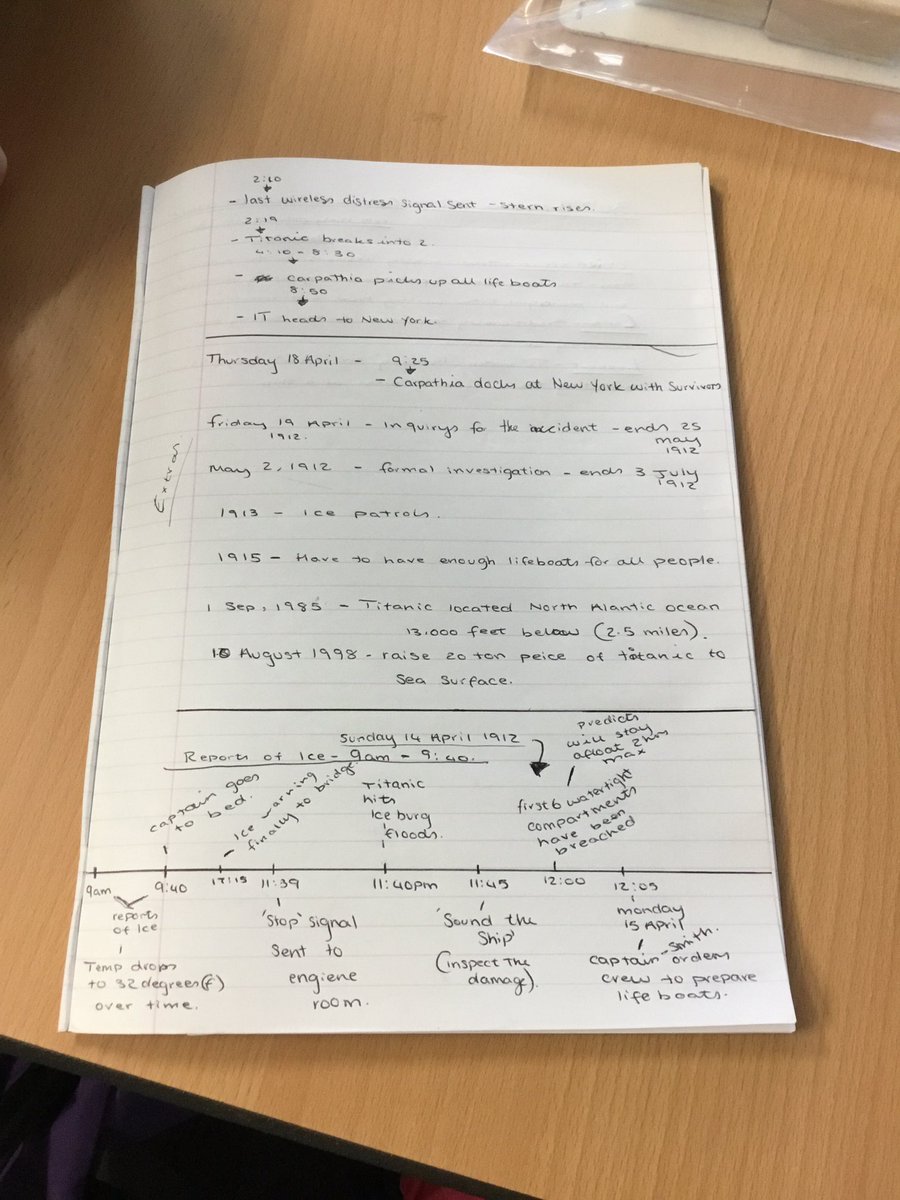 2:10
- last wireless distress signal sent - stern rises.
2:19
- Titanic breaks into 2.
4:10 - 8:30
- carpathia picks up all life boats
8:50
- IT heads to New York.
Thursday 18 April - 9:25
- Carpathia docks at New York with Survivors
Extras
friday 19 April - Inquirys for the accident - ends 25
1912. may
1912
May 2, 1912 - formal investigation - ends 3 July
1912
1913 - Ice patrols.
1915 - Have to have enough lifeboats for all people.
1 Sep, 1985 - Titanic located North Alantic ocean
13,000 feet below (2.5 miles).
10 August 1998 - raise 20 ton peice of titanic to
Sea Surface.
Sunday 14 April 1912
Reports of Ice - 9am - 9:40.
captain goes
to bed.
Ice warning
finally to bridge
Titanic
hits
Ice burg
floods.
predicts
will stay
afloat 2hrs
max
first 6 watertight
compartments
have been
breached
9am 9:40 11:39 11:40pm 11:45 12:00 12:05
reports
of Ice
Temp drops
to 32 degrees (f)
over time.
'Stop' signal
Sent to
engiene
room.
'Sound the
Ship'
(inspect the
damage).
monday
15 April
captain - Smith.
orders
crew to prepare
life boats.